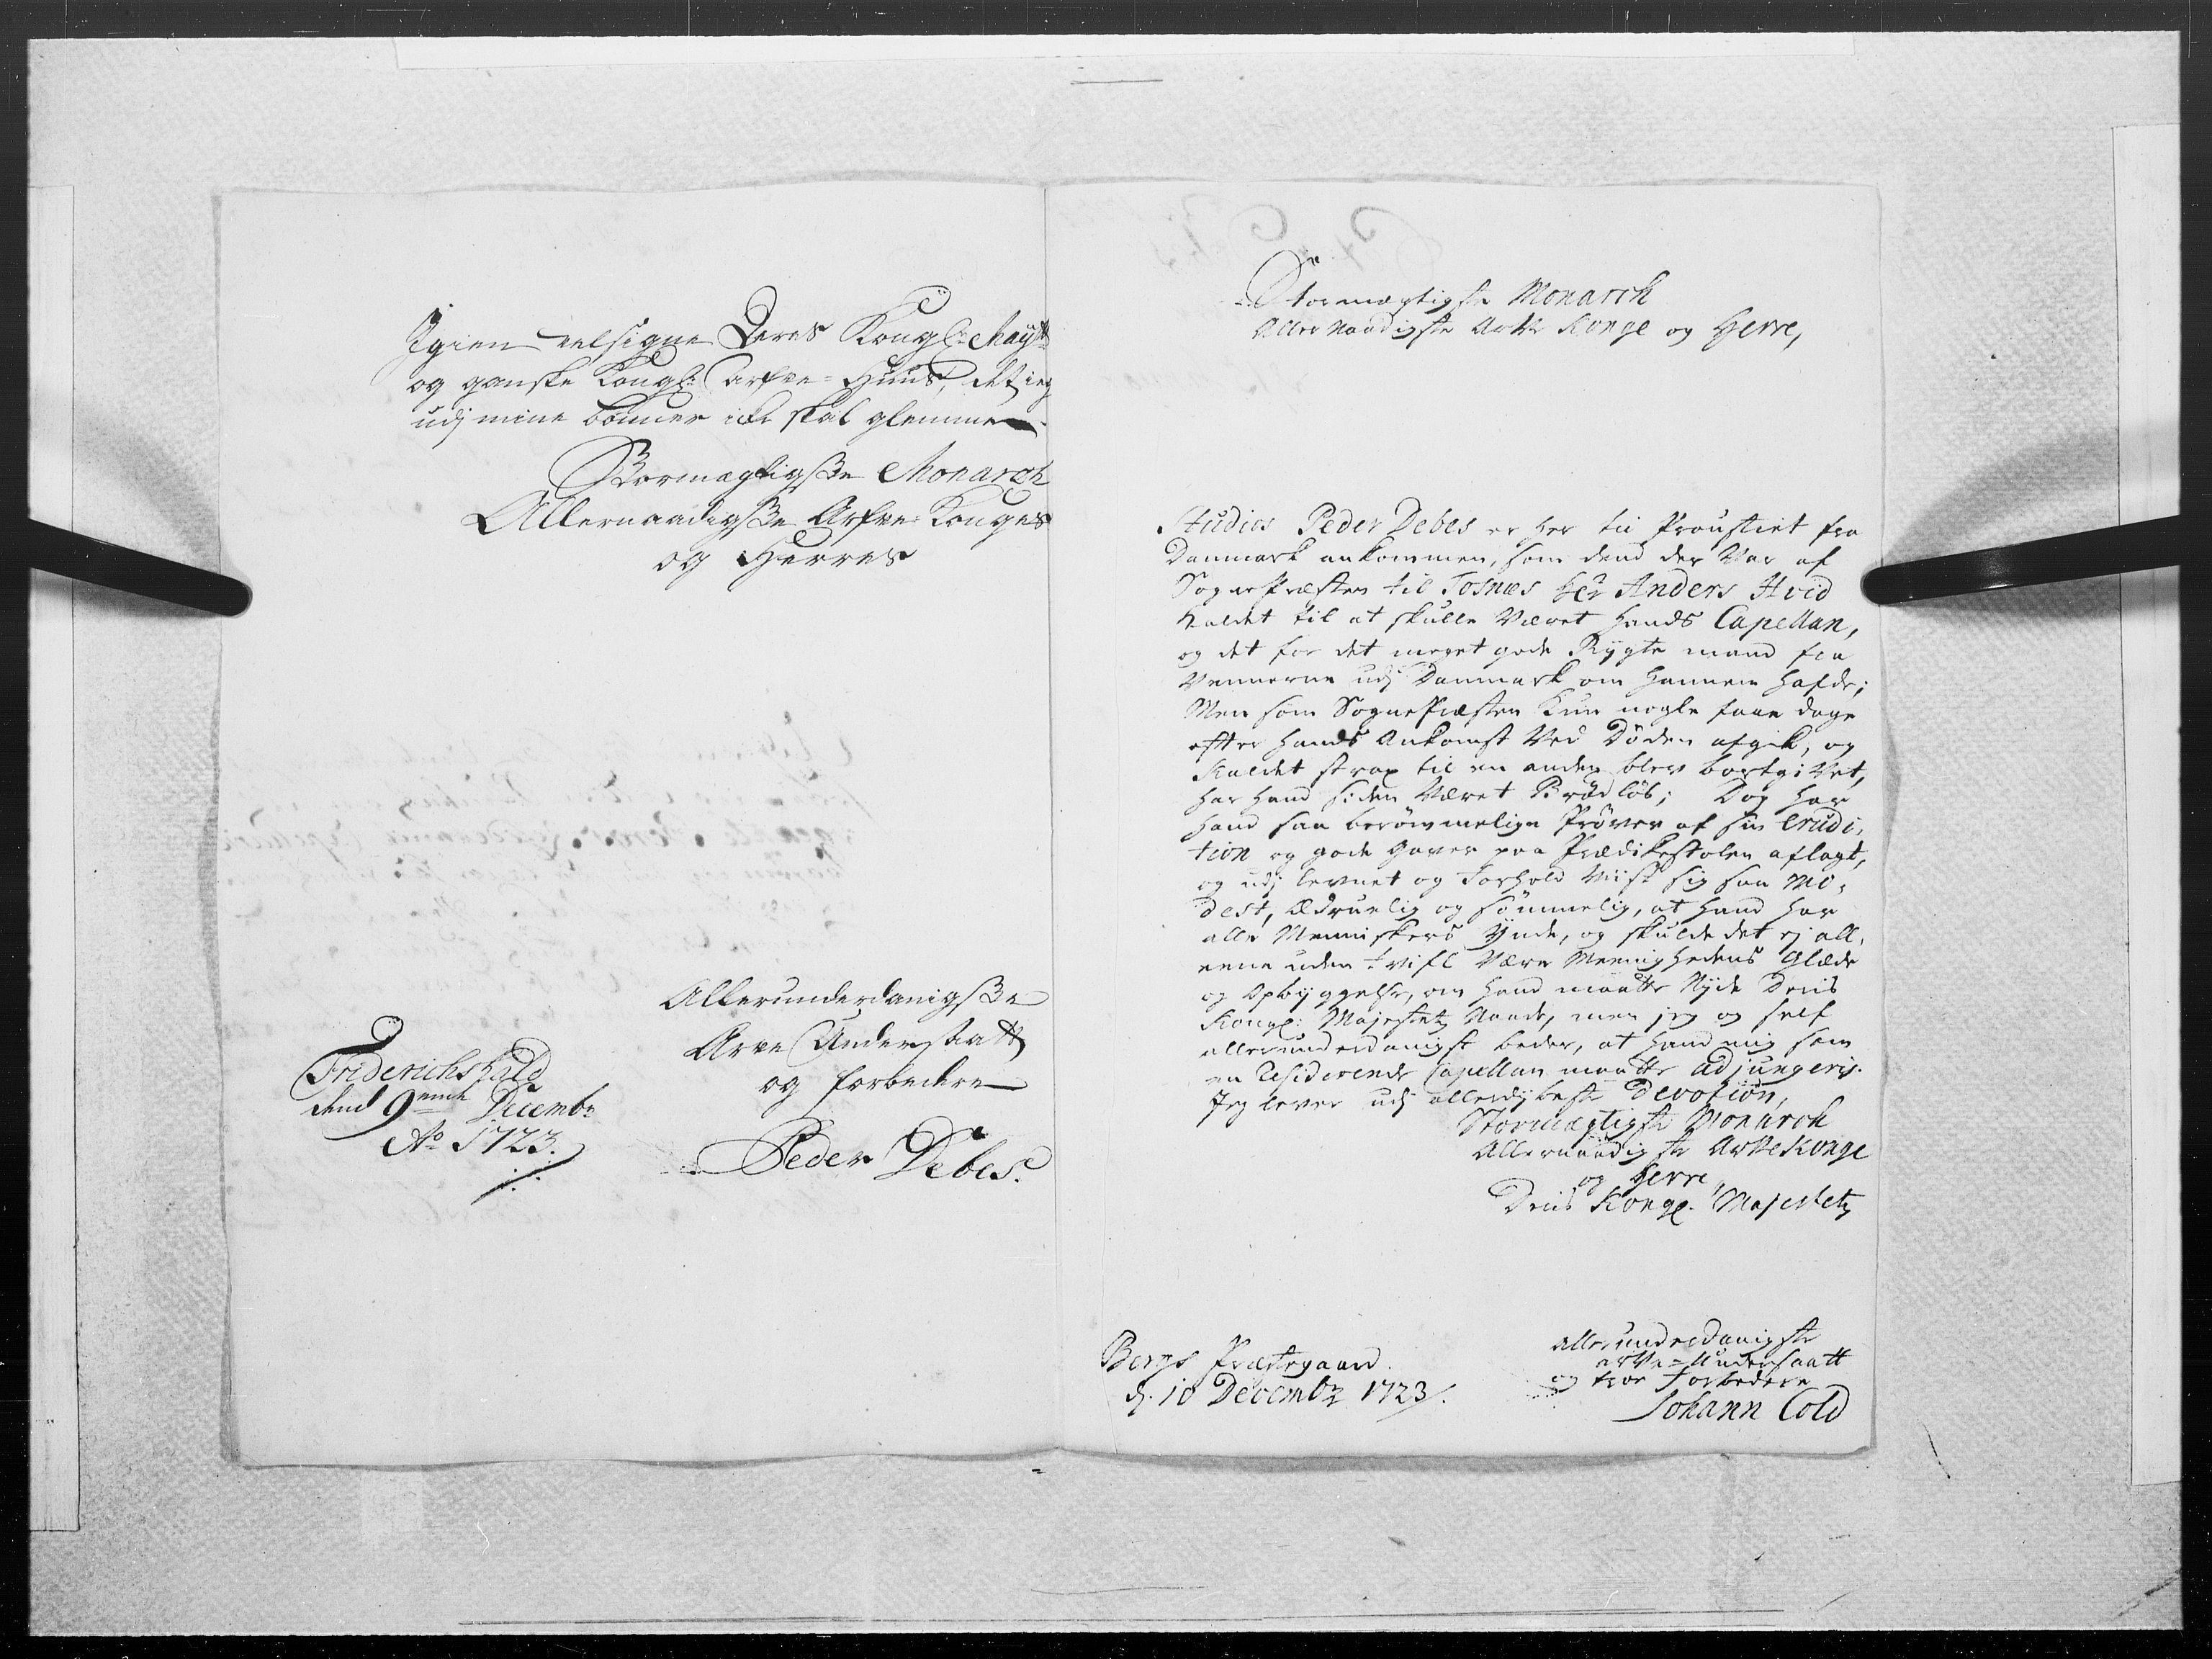 Igien velsigne Deres Kongl: Mayst:
og ganske Kongl: Arfve-Huus, det ieg
udj mine bønner icke skal glemme
Stormægtigste Monarch
Allernaadigste Arfve Konges
og Herres
Allerunderdanigste
Arve Understatt
og forbedere
Peder Debes.
Friderichshald
dend 9ende Decembr
Ao 1723.
Stormægtigste Monarch
Allernaadigste Arve Konge og Herre,
Studios Peder Debes er her til Proustiet fra
Danmark ankommen, som dend der Var af
SognePræsten til Tosnæs Her Anders Hvid
Kaldet til at skulle Været hands Capellan,
og det for det meget gode Rygte mand fra
Vennerne udj Danmark om hannem hafde;
Men som SognePræsten kun nogle faae dage
efter hands Ankomst Ved Døden afgik, og
Kaldet strax til en anden blev bortgivet,
har hand siden Været Brødløs; Dog har
hand saa berømmelige Prøver af sin Erudi-
tion og gode gaver paa Prædikestolen aflagt,
og udj levnet og Forhold Viist sig saa Mo-
dest, ædruelig og sømmelig, at hand har
alle Menniskers Ynde, og skulde det ej all-
eene uden tvifl Være Meenighedens Glæde
og Opbyggelse, om hand maatte Nyde Deris
Kongl: Majestetz Naade, men jeg og self
allerunderdanigst beder, at hand mig som
en Residerende Capellan maatte adjungeris.
Jeg lever udj allerdybeste Devotion,
Stormægtigste Monarch
Allernaadigste ArveKonge
og Herre,
Deris Kongl. Majestetz
Bergs Præstegaard.
d. 10 Decembr 1723.
allerunderdanigste
arve-Undersaatt
og troe Forbedere
Johann Cold